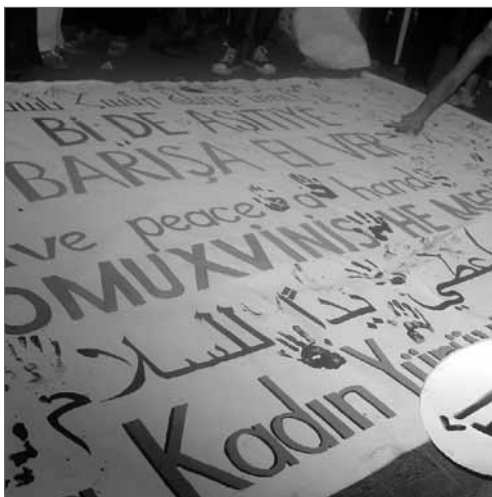 Bİ DE AŞİTİYE
BARIŞA EL VER
ive peace a hand
OMUXVINIS HE
أعطي يداً للسلام
Kadın